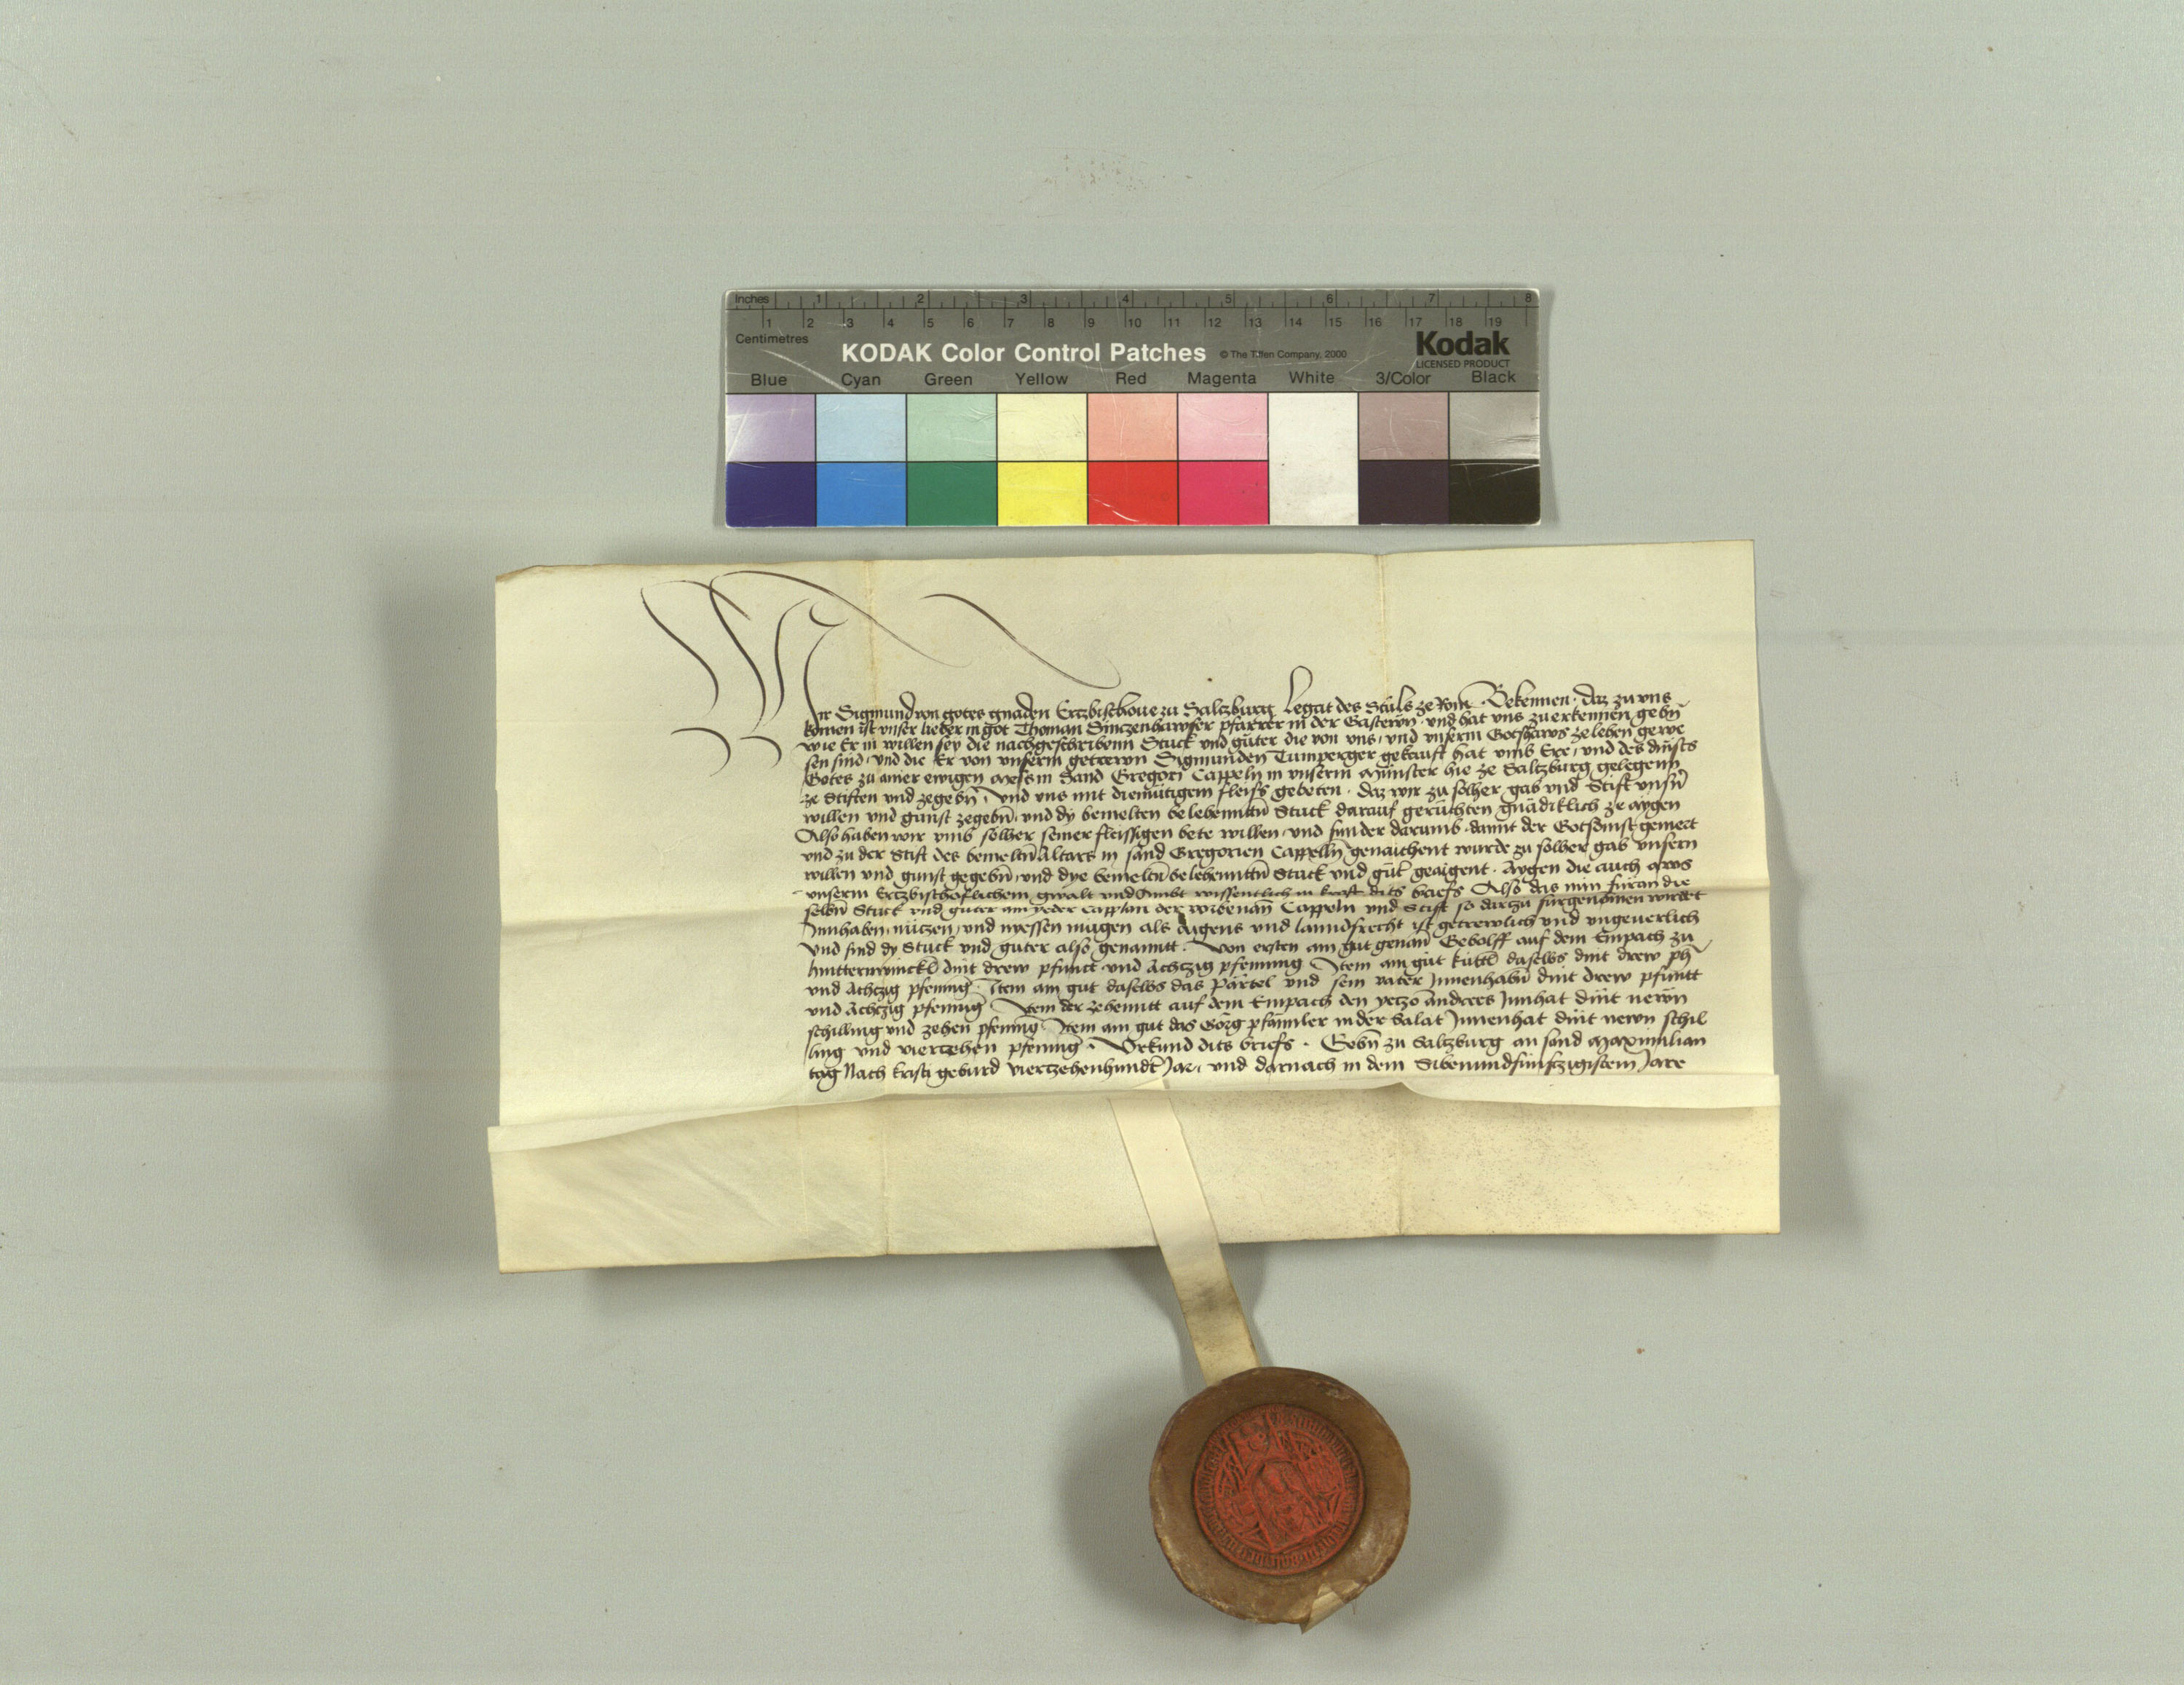 Inches 1 2 3 4 5 6 7 8
1 2 3 4 5 6 7 8 9 10 11 12 13 14 15 16 17 18 19
Centimetres
KODAK Color Control Patches © The Tiffen Company, 2000 Kodak
LICENSED PRODUCT
Blue Cyan Green Yellow Red Magenta White 3/Color Black
Wir Sigmund von gotes gnaden Ertzbischoue zu Saltzburg Legat des Stuls ze Rom Bekennen · daz zu vns
komen ist vnser lieber in got Thoman Sinczenhawser pfarrer in der Gastewn · vnd hat vns zuerkennen gebn̄
wie Er in willen sey die nachgeschribenn Stuck vnd guter die von vns, vnd vnserm Gotshaws ze lehen gewe
sen sind, vnd die Er von vnserm getrewn Sigmunden Tumperger gekauft hat vmb Ere, vnd des dinsts
Gotes zu ainer ewigen Mess in Sand Gregori Cappeln in vnserm Münster hie ze Saltzburg gelegenn
ze Stiften vnd zegebn̄, vnd vns mit diemütigem fleiss gebeten · daz wir zu solher gab vnd Stift vnsn̄
willen vnd gunst zegebn̄, vnd dy bemelten belehennttn̄ Stuck darauf geruchten gnädiklich ze aygen
Also haben wir vmb solher seiner fleissigen bete willen, vnd sunder darumb · damit der Gotsdinst gemert
vnd zu der Stift des bemeltn̄ Altars in sand Gregorien Cappelln̄ genaichent wurde zu solher gab vnsern
willen vnd gunst gegebn̄, vnd dye bemeltn̄ belehennttn̄ Stuck vnd güt̄ geaigent · Aygen die auch aws
vnserm Ertzbischoflichem gwalt vnd Ambt wissentlich in kraft dits briefs Also das nun furan die
selbn̄ Stuck vnd guter ain yeder Capplan der vorbenan̄ Cappeln vnd Stift so darzu fürgenomen wirdet
Innhaben, nützen, vnd niessen mügen als Aigens vnd lanndsrecht ist getrewlich vnd vngeuerlich
Vnd sind dy Stuck vnd guter also genannt · Von ersten ain gut genan̄ Gebolff auf dem Empach zu
dint drew pfunt vnd Achtzig pfenning Item ain gut daselbs dint drew ph̄
vnd Achtzig pfenning · Item ain gut daselbs das Pärtel vnd sein vater Innenhabn̄ dint drew pfuntt
vnd Achtzig pfennig Item der zehenntt auf dem Empach den yetzo Andrees Innhat dint newn
schilling vnd zehen pfenning Item ain gut das Görg pfännler in der Salat Innenhat dint newn schil
ling vnd viertzehen pfening · Vrkund dits briefs · Gebn̄ zu Saltzburg an sand Maximilian
tag Nach kristi geburd viertzehenhundt̄ Jar, vnd darnach in dem Sibenundfunfzigistem Jare